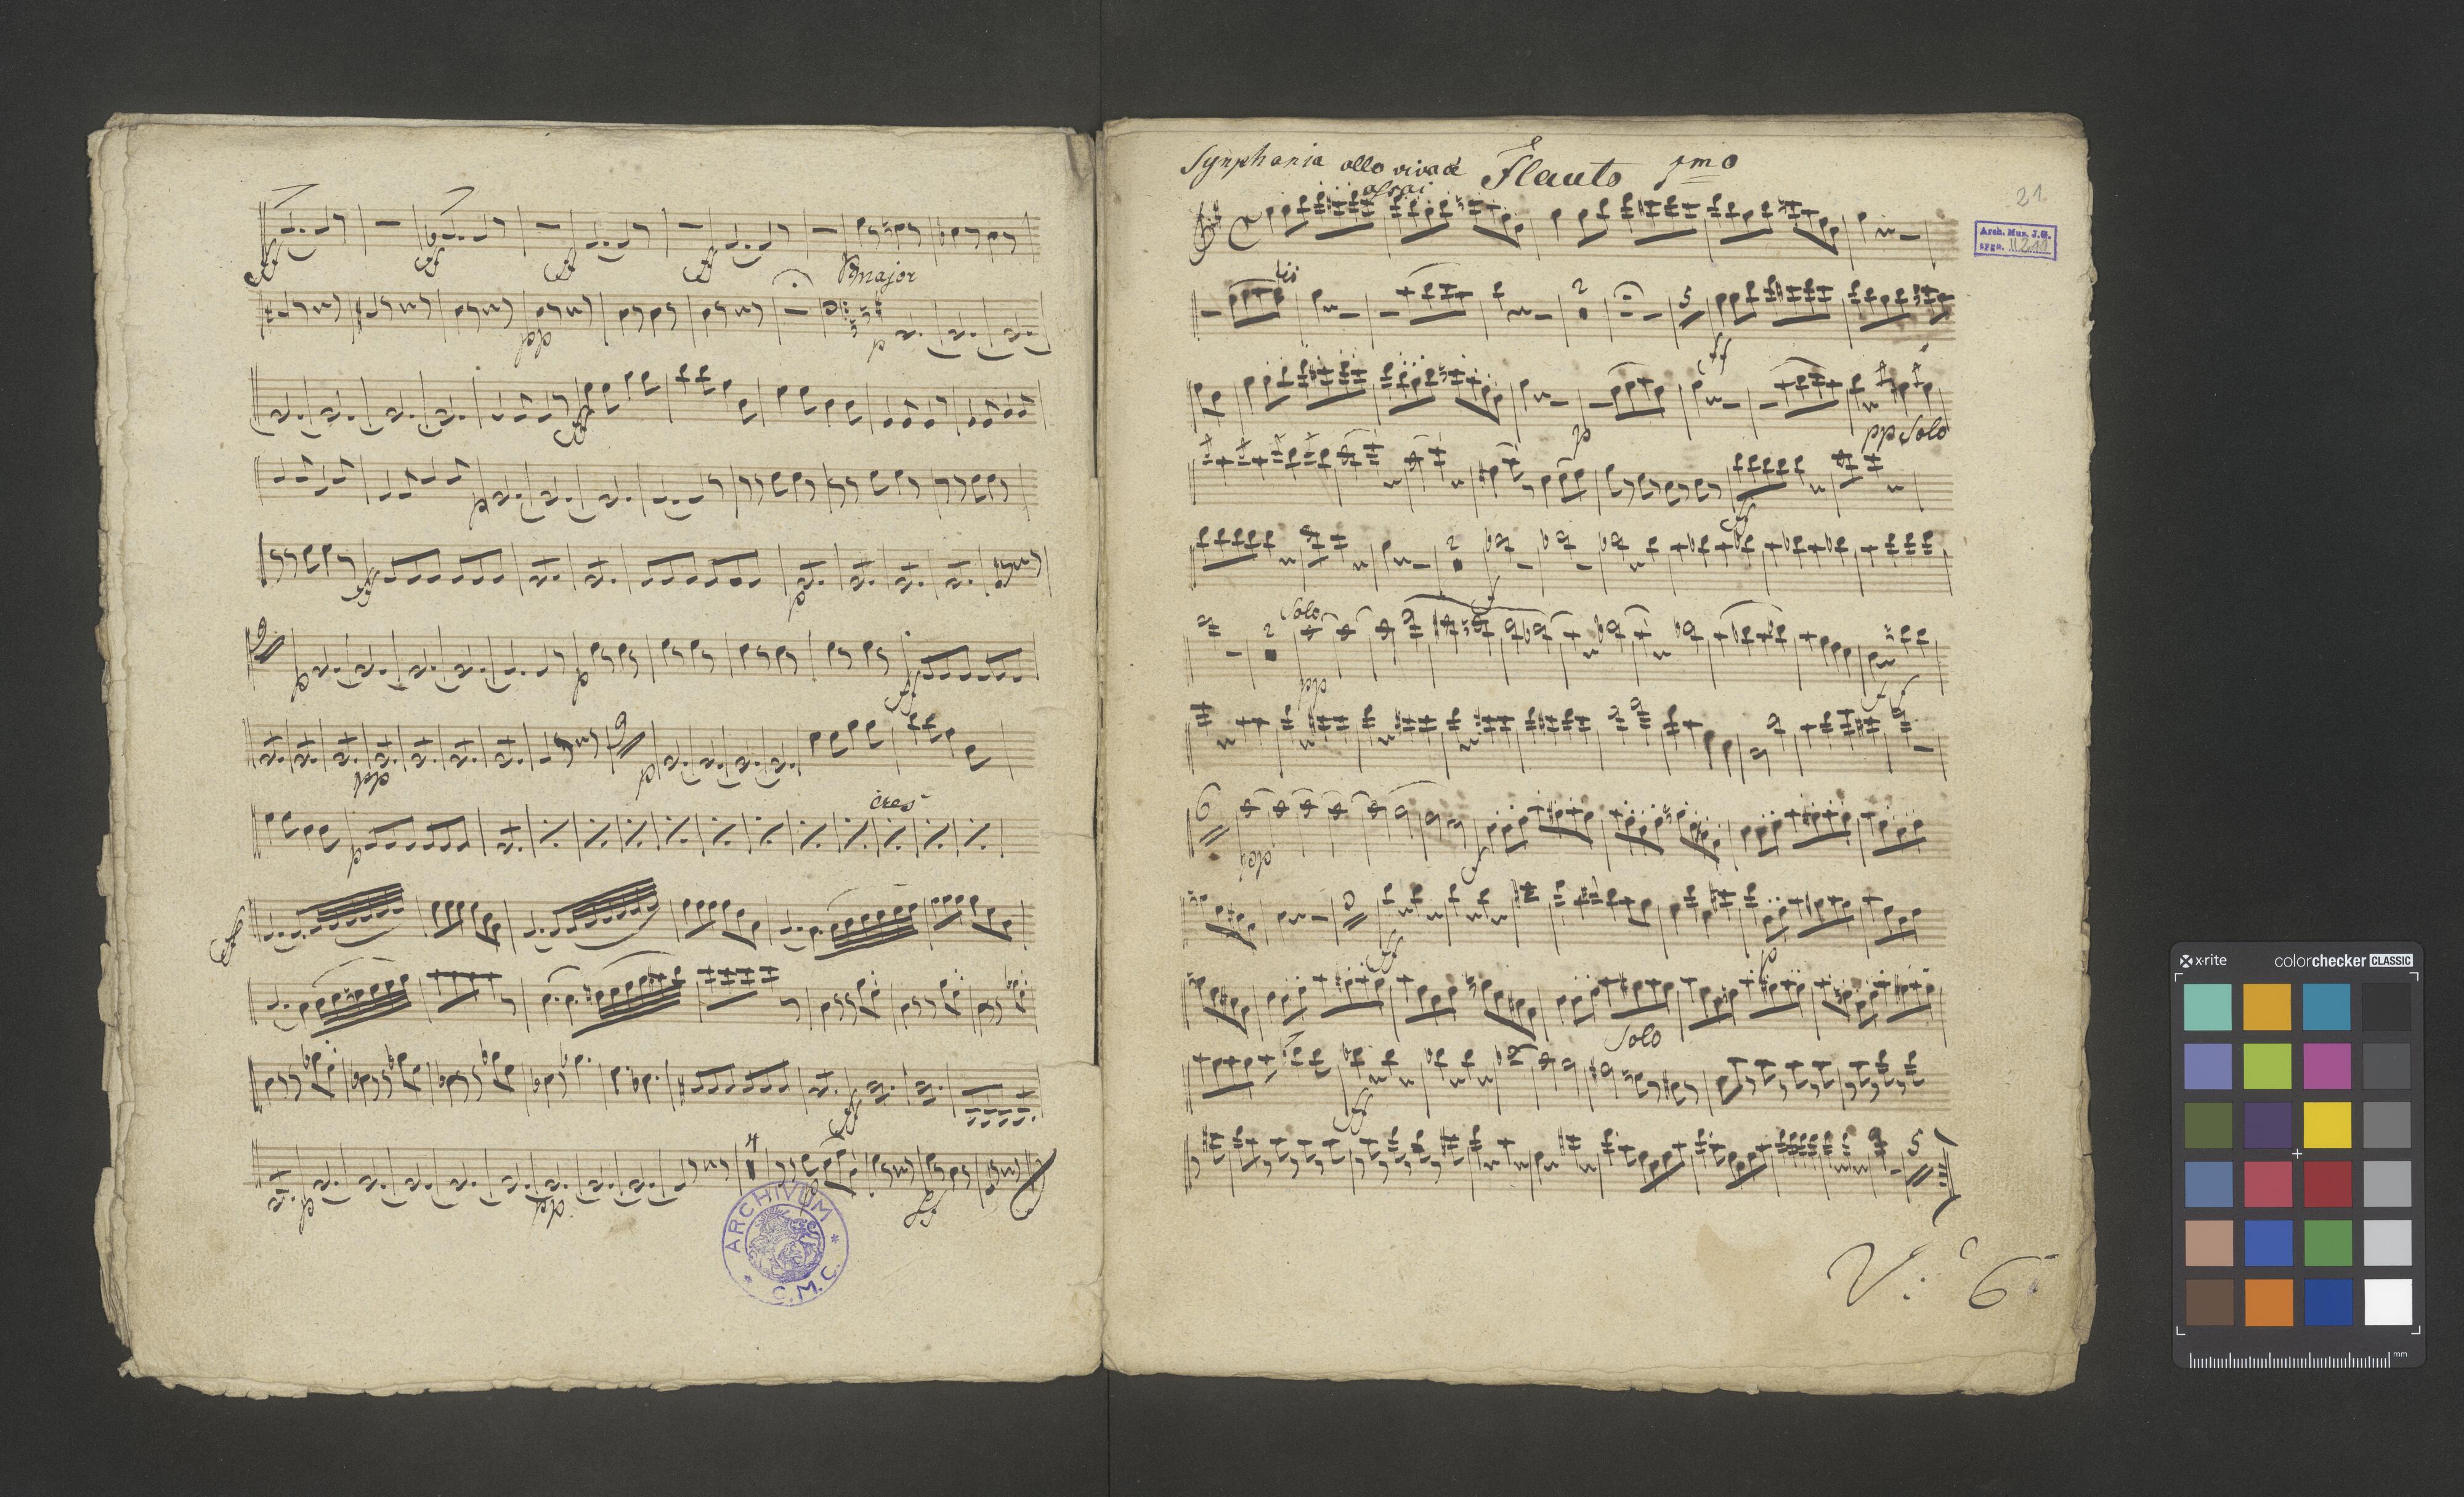 ff ff ff ff
major
pp p
ff
p
ff p
9 p p ff
pp 9 p
cres
p
ff
ff
4
p pp ff
ARCHIVUM
* C.M.C. *
Synphania allo vivace Flauto 1mo
assai
21
Arch. Mus. J.G.
sygn. II 210
2 5
ff
p pp Solo
ff
2
f
2 Solo
pp f f
6
f
ff p
Solo
ff
5